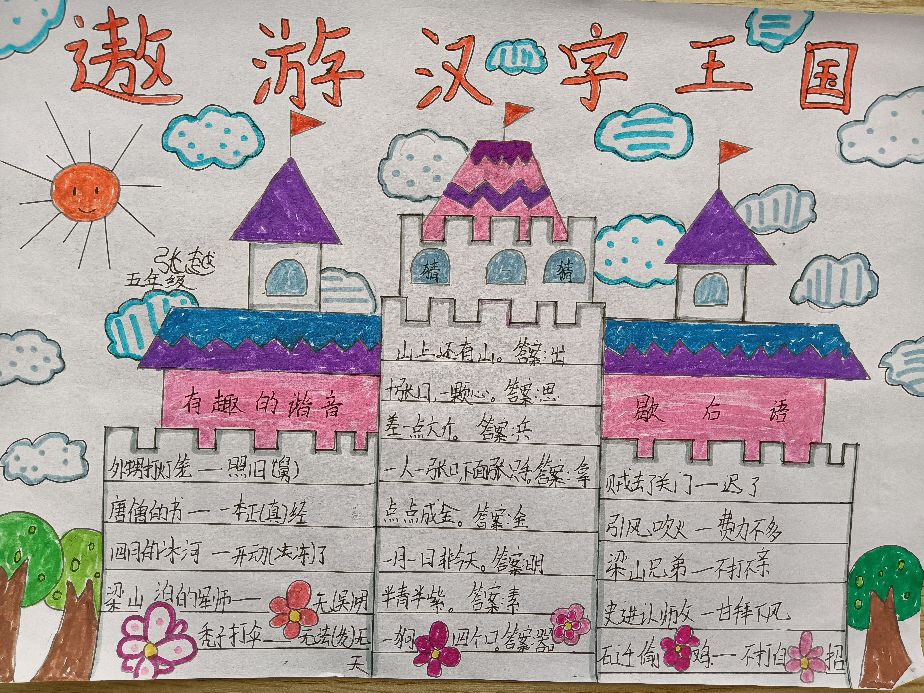 遨游汉字王国
张越
五年级
猜 一 猜
有趣的谐音
外甥打灯笼——照旧(舅)
唐僧的书——一本正(真)经
四月的冰河——开动(冻)了
梁山泊的军师——无
秃子打伞——无法(发)无天
山上还有山。答案:出
十张口,一颗心。答案:思
差一点六斤。答案:兵
一人一张口,下面长只手。答案:拿
点点成金。答案:金
一月一日非今天。答案:明
半青半紫。答案:素
一狗四个口。答案:器
歇后语
贼去了关门——迟了
引风吹火——费力不多
梁山兄弟——不打不亲
史进认师父——甘拜下风
石迁偷鸡——不打自招